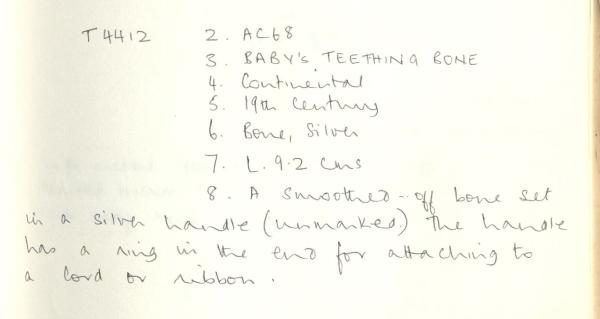 T4412 2. AC68
3. BABY'S TEETHING BONE
4. Continental
5. 19th Century
6. Bone, Silver
7. L. 9.2 cms
8. A smoothed-off bone set
in a silver handle (unmarked.) The handle
has a ring in the end for attaching to
a cord or ribbon.